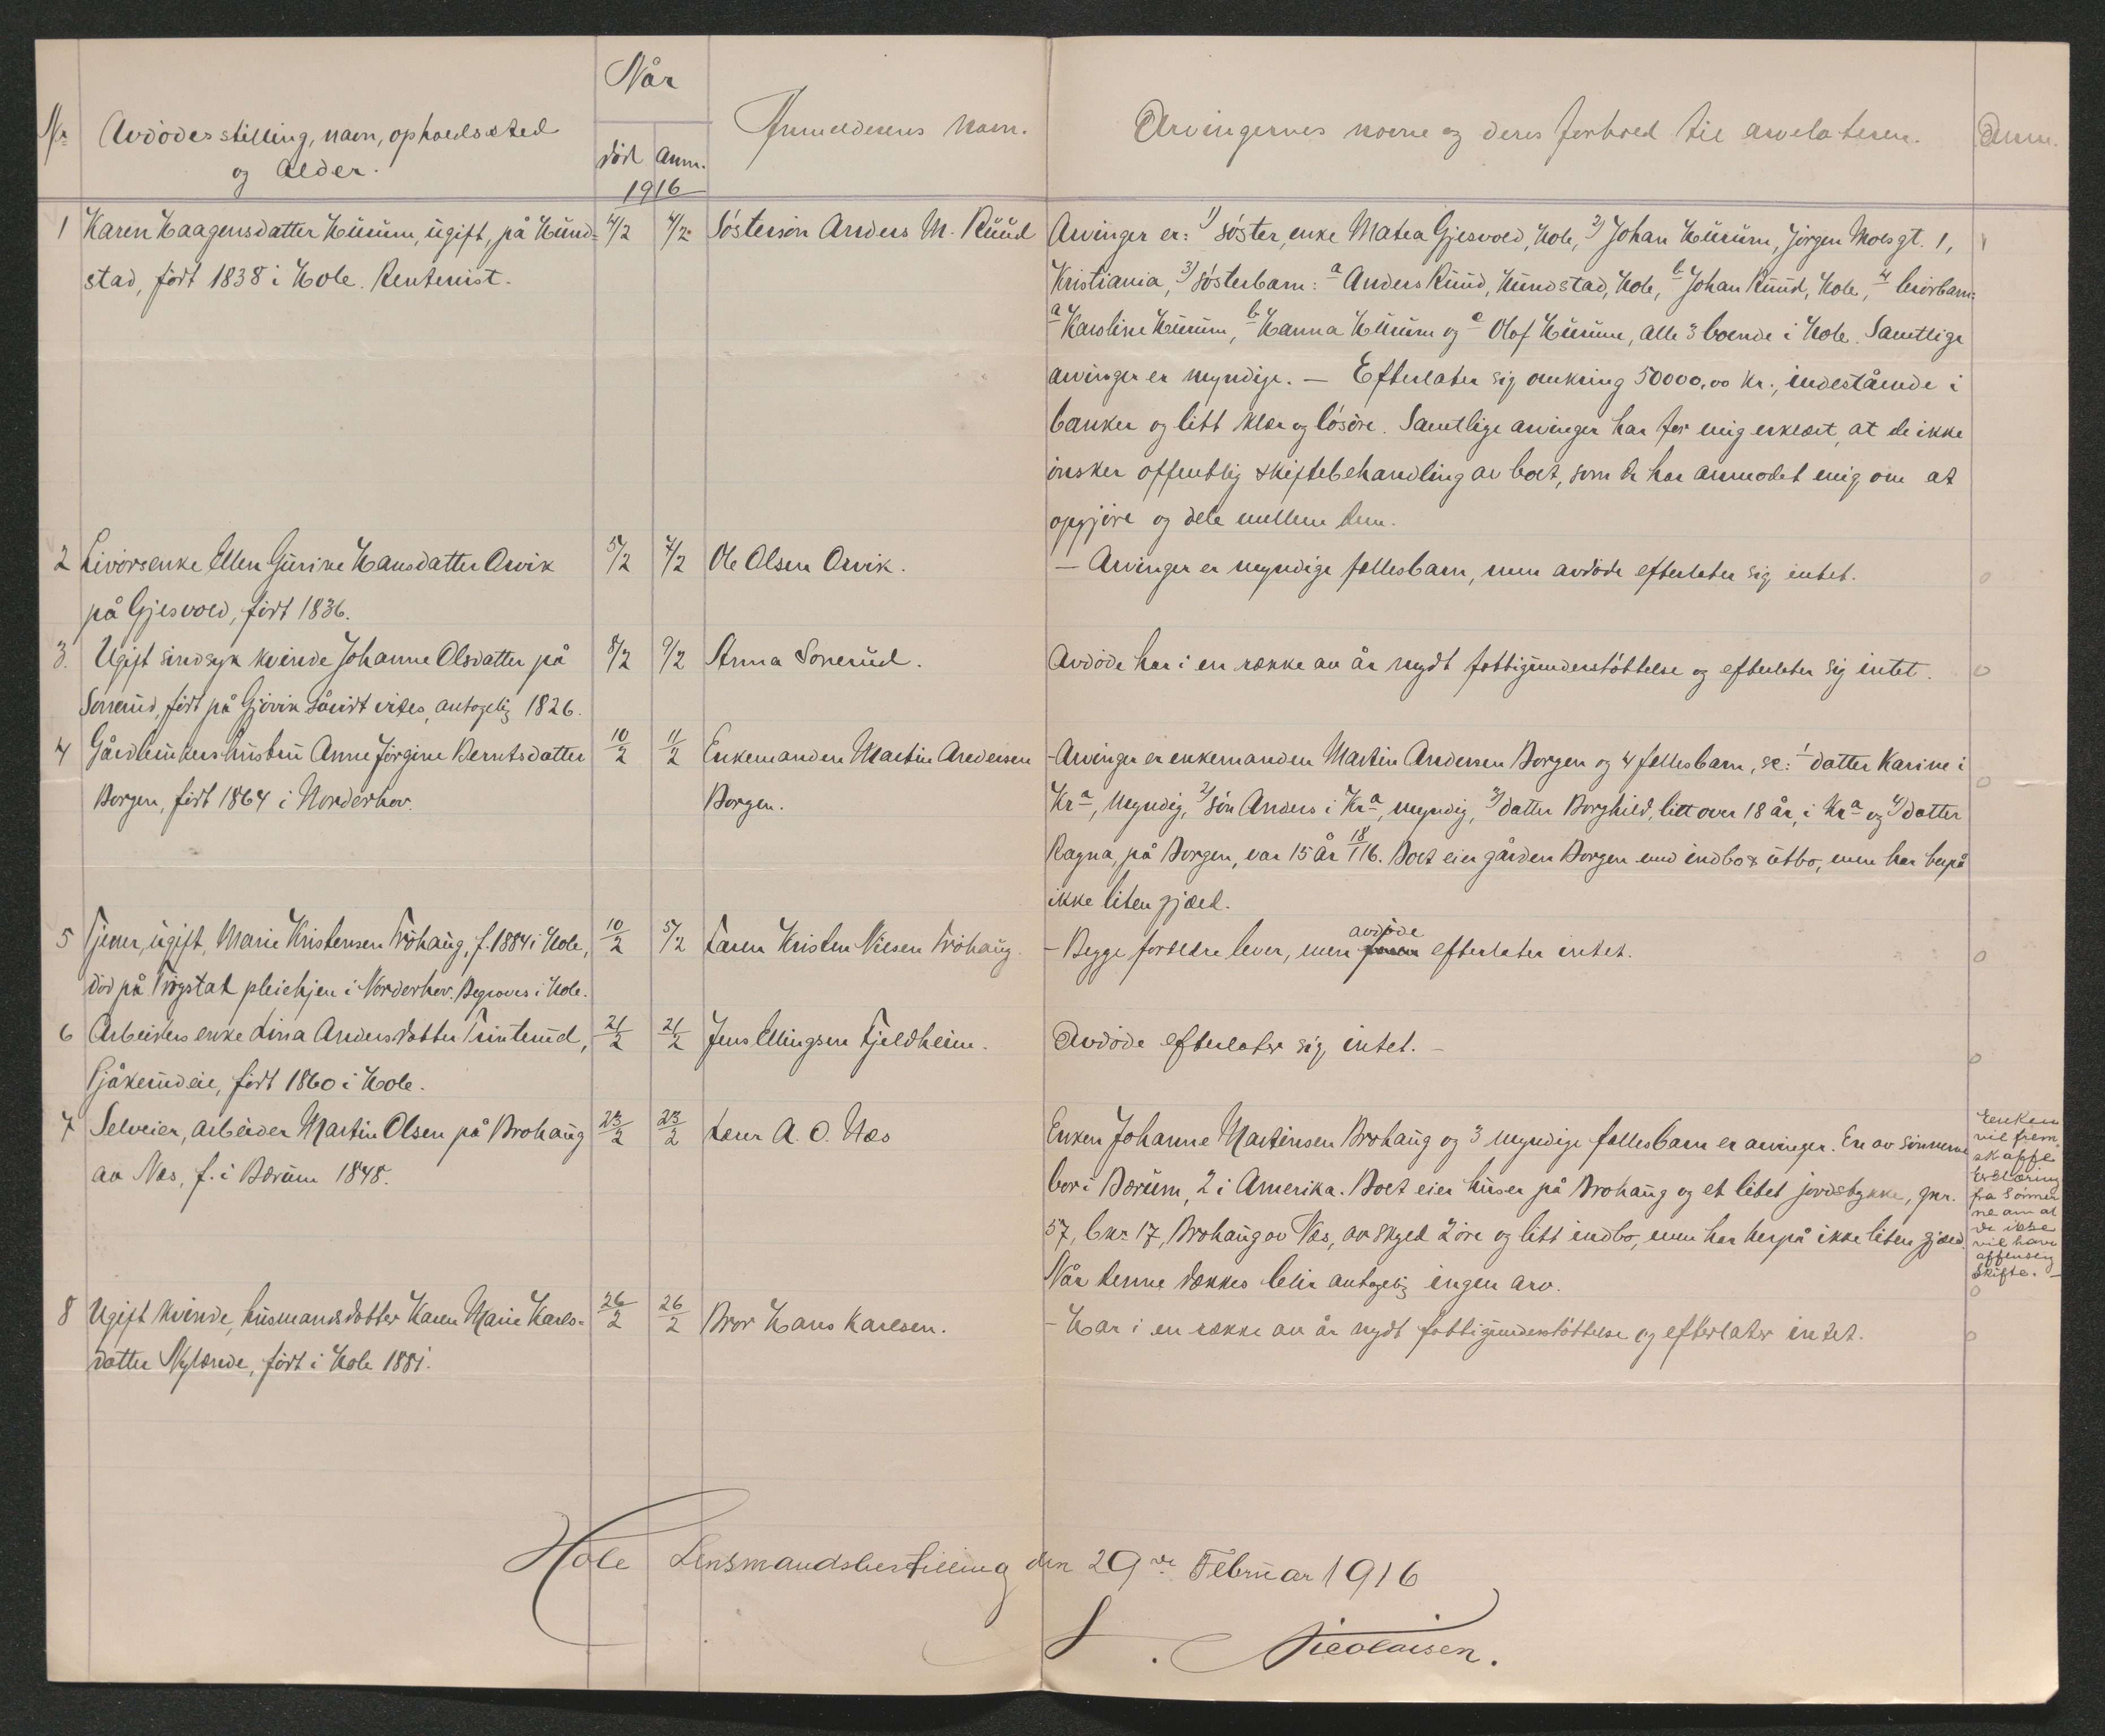 Når
Nr. Avdödes stilling, navn, opholdssted og alder.
död anm.
1916
Anmelderens navn.
Arvingernes navne og deres forhold til arvelateren.
Anm.
1 Karen Haagensdatter Hurum, ugift, på Hund-
stad, födt 1838 i Hole. Rentenist.
4/2 4/2 Söstersön Anders M. Ruud
Arvinger er: 1) söster, enke Matea Gjesvold, Hole, 2) Johan Hurum, Jörgen Moesgt. 1,
Kristiania, 3) söstersbarn: a Anders Ruud, Hundstad, Hole, b Johan Ruud, Hole, 4 brorbarn:
a Karoline Hurum, b Hanna Hurum og c Olaf Hurum, alle 3 boende i Hole. Samtlige
arvinger er myndige. — Efterlater sig omkring 50000,00 kr., indestående i
banker og litt klær og lösöre. Samtlige arvinger har for mig erklært, at de ikke
önsker offentlig skiftebehandling av boet, som de har anmodet mig om at
opgjöre og dele mellem dem.
2 Livörsenke Ellen Gurine Hansdatter Arvik
på Gjesvold, födt 1836.
5/2 7/2 Ole Olsen Arvik.
— Arvinger er myndige fellesbarn, men avdöde efterlater sig intet.
0
3. Ugift sindsyk kvinde Johanne Olsdatter på
Sonerud, födt på Gjövik såvidt vites, antagelig 1826.
8/2 9/2 Anna Sonerud.
Avdöde har i en række av år nydt fattigunderstöttelse og efterlater sig intet.
0
4 Gårdbrukerhustru Anne Jörgine Berntsdatter
Borgen, födt 1864 i Norderhov.
10/2 11/2 Enkemanden Martin Andersen
Borgen.
- Arvinger er enkemanden Martin Andersen Borgen og 4 fellesbarn, se: 1 datter Karine i
Kra, myndig, 2) sön Anders i Kra, myndig, 3) datter Borghild, litt over 18 år, i Kra og 4) datter
Ragna, på Borgen, var 15 år 18/1 16. Boet eier gården Borgen med indbo & utbo, men har herpå
ikke liten gjæld.
0
5 Tjener, ugift, Marie Kristensen Fröhaug, f. 1884 i Hole,
död på Trögstat pleiehjem i Norderhov. Begraves i Hole.
10/2 5/2 Faren Kristen Nilsen Fröhaug.
- Begge forældre lever, men avdöde efterlater intet.
0
6 Arbeiders enke Lina Andersdatter Trinterud,
Gjåkerudeie, födt 1860 i Hole.
21/2 21/2 Jens Ellingsen Fjeldheim.
Avdöde efterlater sig intet. —
0
7 Selveier, arbeider Martin Olsen på Brohaug
av Næs, f. i Bærum 1848.
23/2 23/2 Lærer A. O. Næs
Enken Johanne Martinsen Brohaug og 3 myndige fællesbarn er arvinger. En av sönnerne
bor i Bærum, 2 i Amerika. Boet eier huser på Brohaug og et litet jordstykke, gnr.
57, bnr. 17, Brohaug av Næs, av skyld 2 öre og litt indbo, men har herpå ikke liten gjæld.
Når denne dækkes blir antagelig ingen arv.
Enken
vil frem-
skaffe
Erklæring
fra sönner
ne om at
de ikke
vil have
offentlig
skifte. —
0
8 Ugift kvinde, husmandsdatter Karen Marie Karls-
datter Nylænde, födt i Hole 1881.
26/2 26/2 Bror Hans Karlsen.
- Har i en række av år nydt fattigunderstöttelse og efterlater intet.
0
Hole Lensmandsbestilling den 29de Februar 1916
S. Nicolaisen.